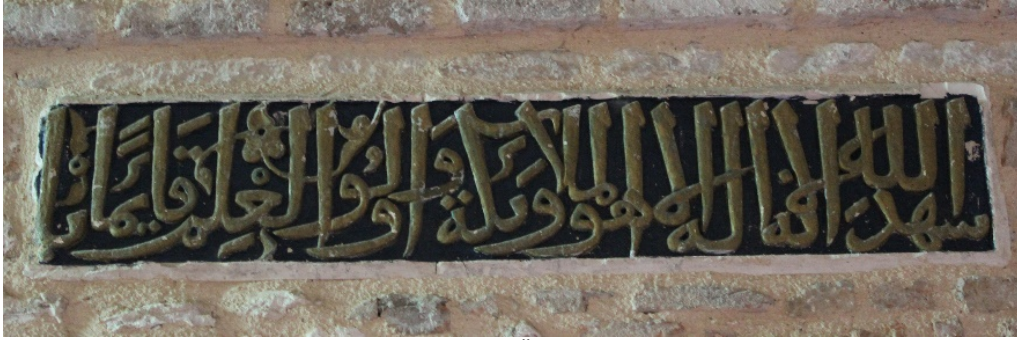 شهد الله انه لا اله الا هو والملائكة واولوا العلم قائما با